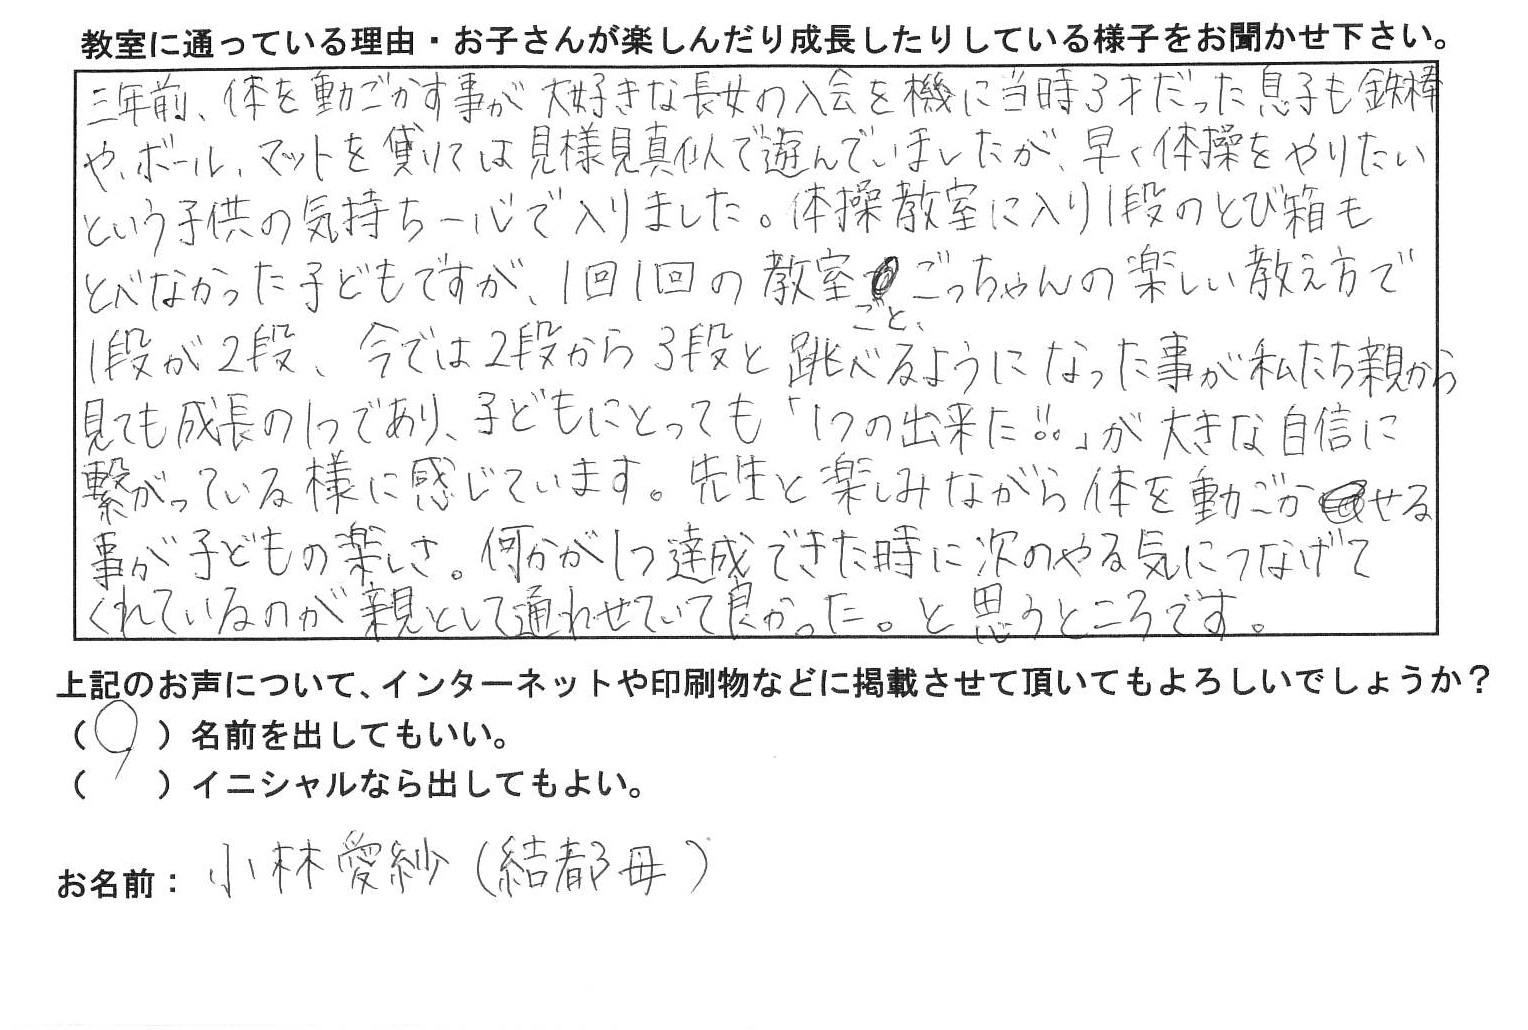 教室に通っている理由・お子さんが楽しんだり成長したりしている様子をお聞かせ下さい。
三年前、体を動ごかす事が大好きな長女の入会を機に当時3才だった息子も鉄棒
や、ボール、マットを貸りては見様見真似で遊んでいましたが、早く体操をやりたい
という子供の気持ち一心で入りました。体操教室に入り1段のとび箱も
とべなかった子どもですが、1回1回の教室ごと、ごっちゃんの楽しい教え方で
1段が2段、今では2段から3段と跳べるようになった事が私たち親から
見ても成長の1つであり、子どもにとっても「1つの出来た!!」が大きな自信に
繋がっている様に感じています。先生と楽しみながら体を動ごかせる
事が子どもの楽しさ。何かが1つ達成できた時に次のやる気につなげて
くれているのが親として通わせていて良かった。と思うところです。
上記のお声について、インターネットや印刷物などに掲載させて頂いてもよろしいでしょうか？
（○）名前を出してもいい。
（　）イニシャルなら出してもよい。
お名前：小林愛紗（結都母）